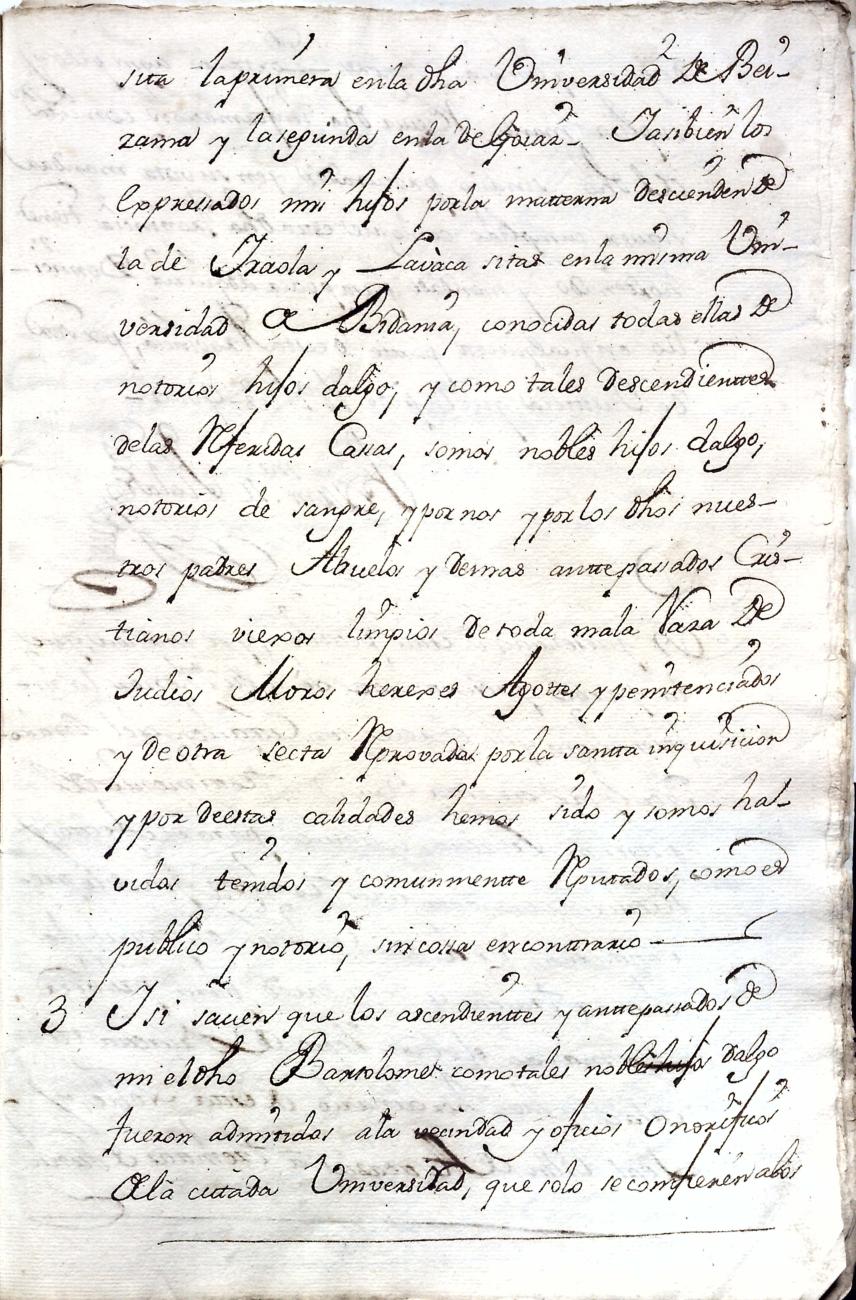 sita la primera en la dha Universidad de Bei-
zama y la segunda en la de Goiaz- Iasibien los
expressados mis hijos por la matterna descienden de
la de Iraola y Lavaca sitas en la misma Uni-
versidad de Bidania, conocidas todas ellas de
notorios hijos dalgo, y como tales descendienttes
delas Referidas Casas, somos nobles hijos dalgo,
notorios de sangre, y por nos y por los dhos nues-
tros padres Abuelos y demas anttepasados Cris-
tianos viexos limpios de toda mala Raza de
Judios Moros herexes Agottes y penitenciados
y de otra secta Reprovada por la santta inquisicion
y por de estas calidades hemos sido y somos ha-
vidos tenidos y comunmentte Reputados, como es
publico y notorio, sin cossa en conttrario
3 Isi saven que los ascendienttes y anttepassados de
mi el dho Bartolome como tales nobles hijos dalgo
fueron admitidos a la vecindad y oficios Onorificos
de la cittada Universidad, que solo se confieren a los